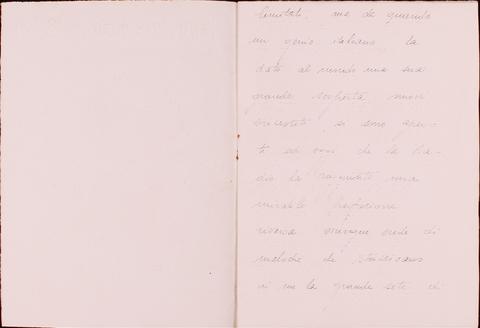 limitati, ma da quando
un genio italiano, la
dato al mondo una sua
grande scoperta, nuovi
orizzonti si sono aper-
ti ed oggi che la Ra-
dio ha raggiunto una
mirabile perfezione
ovunque onde di
melodie si
la grande sete di